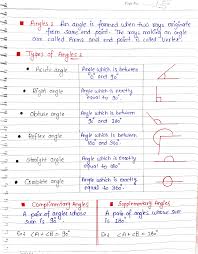 Angles : An angle is formed when two rays originate
from same end point. The rays making an angle
are called Arms and end point is called "Vertex"
Types of Angles :
Acute angle Angle which is between
0° and 90°
Right angle Angle which is exactly
equal to 90°.
Obtuse angle Angle which is between
90° and 180°
Reflex angle Angle which is between
180° and 360°
Straight angle Angle which is exactly
equal to 180°
Complete angle Angle which is exactly
equal to 360°.
Complimentary Angles
A pair of angles whose
sum is 90°
Ex: ∠A + ∠B = 90°
Supplementary Angles
A pair of angles whose
sum is 180°
Ex: ∠A + ∠B = 180°